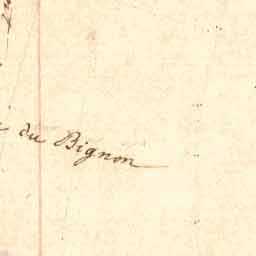 du Bignon